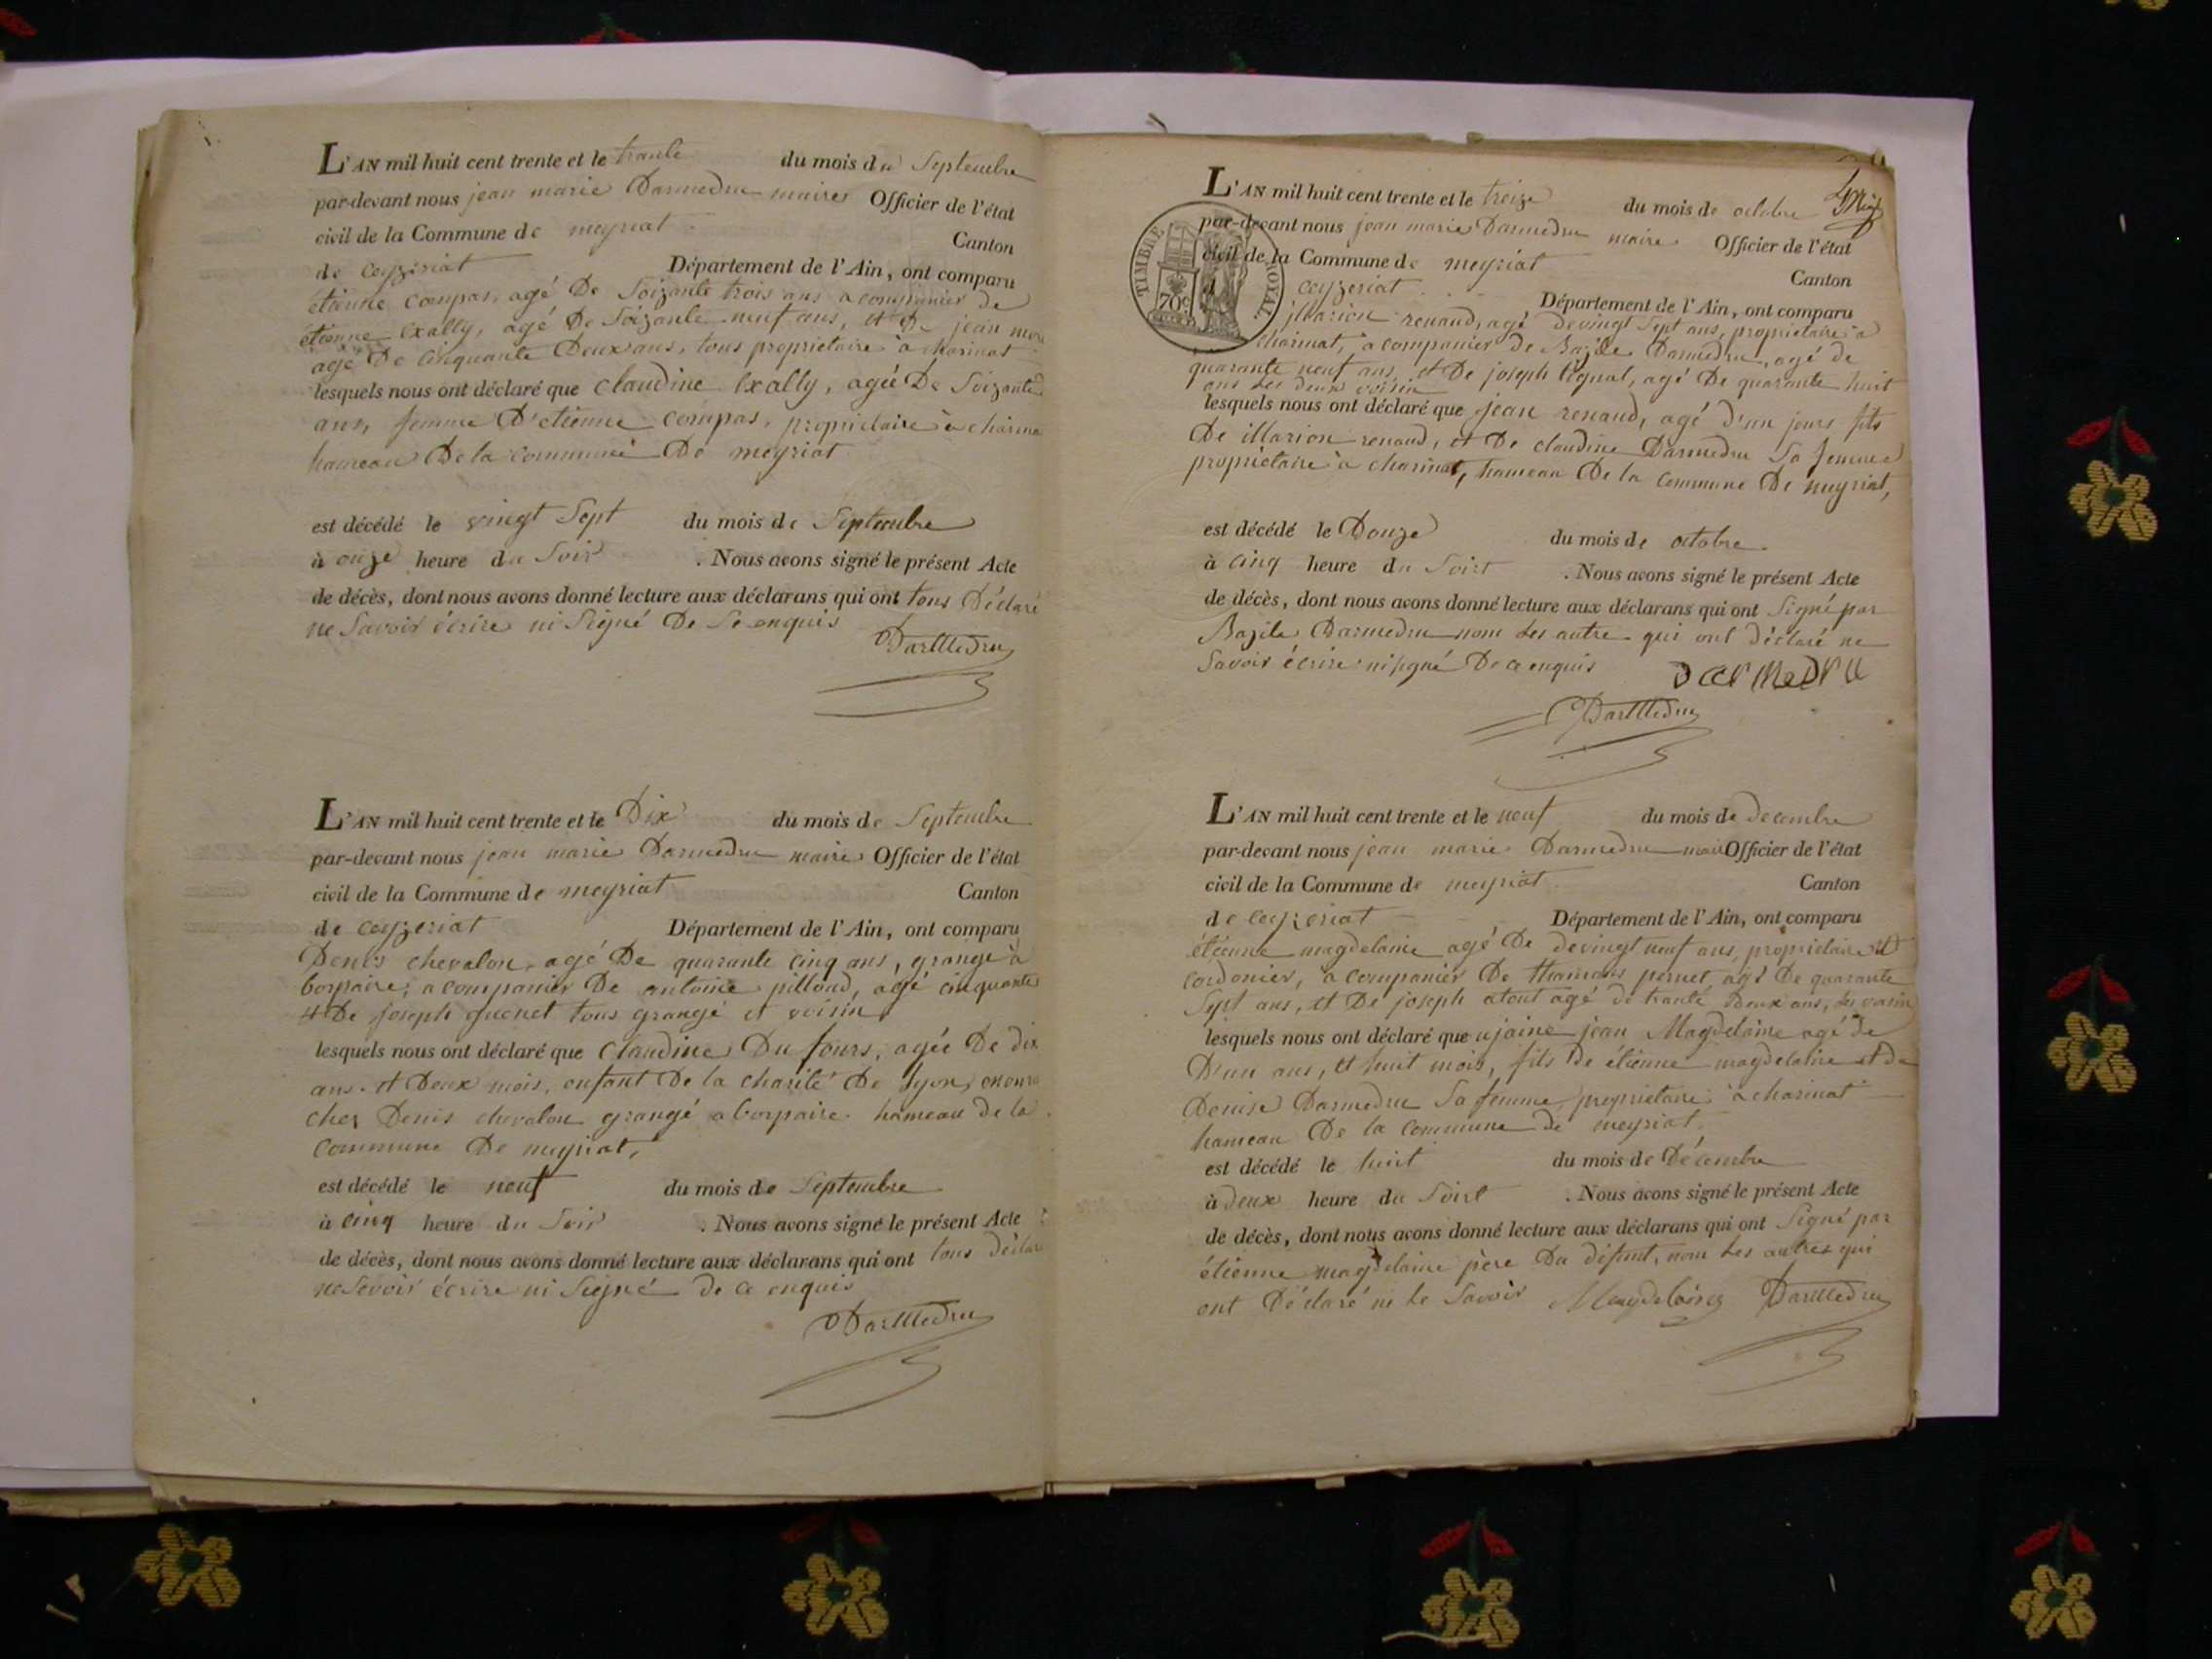 L'AN mil huit cent trente et le trante du mois de Septembre
par-devant nous jean marie Darmedru maire Officier de l'état
civil de la Commune de meyriat Canton
de ceyzeriat Département de l'Ain, ont comparu
étienne compas, agé De Soizante trois ans acompanier de
étienne Exally, agé De Soizante neuf ans, et De jean
agé De Cinquante Deux ans, tous proprietaire à charinat
lesquels nous ont déclaré que Claudine Exally, agée De Soizante
ans, femme D'etienne compas, proprietaire à
hameau De la commune De meyriat
est décédé le vingt Sept du mois de Septembre
à onze heure du Soir . Nous avons signé le présent Acte
de décès, dont nous avons donné lecture aux déclarans qui ont tous Déclaré
ne Savoir écrire ni Signé De Se enquis
Darmedru
L'AN mil huit cent trente et le Dix du mois de Septembre
par-devant nous jean marie Darmedru maire Officier de l'état
civil de la Commune de meyriat Canton
de ceyzeriat Département de l'Ain, ont comparu
Denis chevalon, agé De quarante cinq ans, grangé à
borpaire, acompanier De antoine pilloud, agé cinquante
4 De joseph guenet tous grangé et voisin
lesquels nous ont déclaré que Claudine Du fours, agée De dix
ans. et Deux mois, enfant De la charité De lyon,
chez Denis chevalon grangé a borpaire hameau de la
Commune De meyriat,
est décédé le neuf du mois de Septembre
à cinq heure du Soir . Nous avons signé le présent Acte
de décès, dont nous avons donné lecture aux déclarans qui ont tous
ne Sevoir écrire ni Siegné de ce enquis
Darmedru
L'AN mil huit cent trente et le treize du mois de octobre
par-devant nous jean marie Darmedru maire Officier de l'état
civil de la Commune de meyriat Canton
d ceyzeriat Département de l'Ain, ont comparu
TIMBRE ROYAL
70c
illarion renaud, agé de vingt Sept ans, proprietaire à
charinat, acompanier de Bazile Darmedru, agé de
quarante neuf ans, et De joseph agé De quarante huit
ans Les deux voisin
lesquels nous ont déclaré que jean renaud, agé d'un jours fils
De illarion renaud, et De claudine Darmedru Sa femme
proprietaire à charinat, hameau De la commune De meyriat,
est décédé le Douze du mois de octobre
à cinq heure du Soirt . Nous avons signé le présent Acte
de décès, dont nous avons donné lecture aux déclarans qui ont Signé par
Bazile Darmedru nom Les autre qui ont déclaré ne
Savoir écrire ni signé De ce enquis Darmedru
Darmedru
L'AN mil huit cent trente et le neuf du mois de decembre
par-devant nous jean marie Darmedru maire Officier de l'état
civil de la Commune de meyriat Canton
de ceyzeriat Département de l'Ain, ont comparu
étienne magdelaine agé De de vingt neuf ans, proprietaire et
cordonier, acompanier De thamans pernet, agé De quarante
Sept ans, et De joseph atout agé de trante Deux ans, Les voisin
lesquels nous ont déclaré que ujaine jean Magdelaine agé de
D'un ans, et huit mois, fils de étienne magdelaine et De
Denise Darmedru Sa femme, proprietaire à charinat
hameau De la commune de meyriat.
est décédé le huit du mois de Décembre
à deux heure du Soirt . Nous avons signé le présent Acte
de décès, dont nous avons donné lecture aux déclarans qui ont Signé par
étienne magdelaine père Du défunt, nom Les autres qui
ont Déclaré ne Le Savoir Magdelaine Darmedru